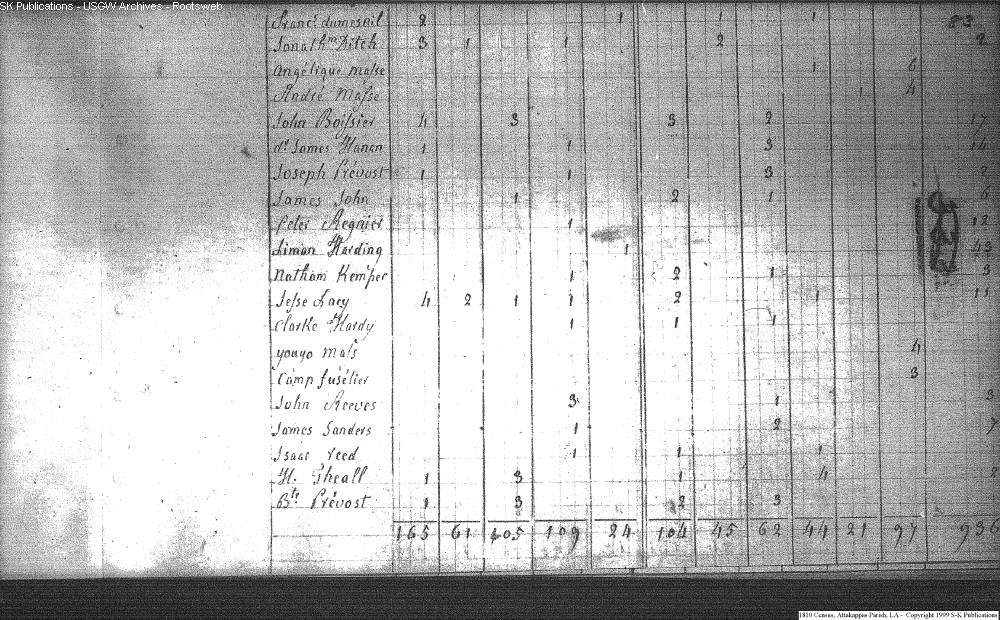 SK Publications - USGW Archives - Rootsweb
83
Franc.s dumesnil 2 1 1 1
Jonath.n Ditch 3 1 1 2 2
Angélique masse 1 6
André Masse 1 4
John Boissier 4 3 3 2 17
d.r James Hanen 1 1 3 14
Joseph Prévost 1 1 3 2
James John 1 2 1 6
Peter Regnier 1 12
Simon Harding 1 43
Natham Kemper 1 2 1 3
Jesse Lacy 4 2 1 1 2 1 11
Clarke Hardy 1 1 1
youyo mass 4
Camp fusélier 3
John Reeves 3 1 3
James Sanders 1 2 7
Isaac reed 1 1 1
H. Theall 1 3 1 4 2
B.te Prévost 1 3 2 3
165 61 105 109 24 104 45 62 44 21 97 936
1810 Census, Attakappas Parish, LA - Copyright 1999 S-K Publications